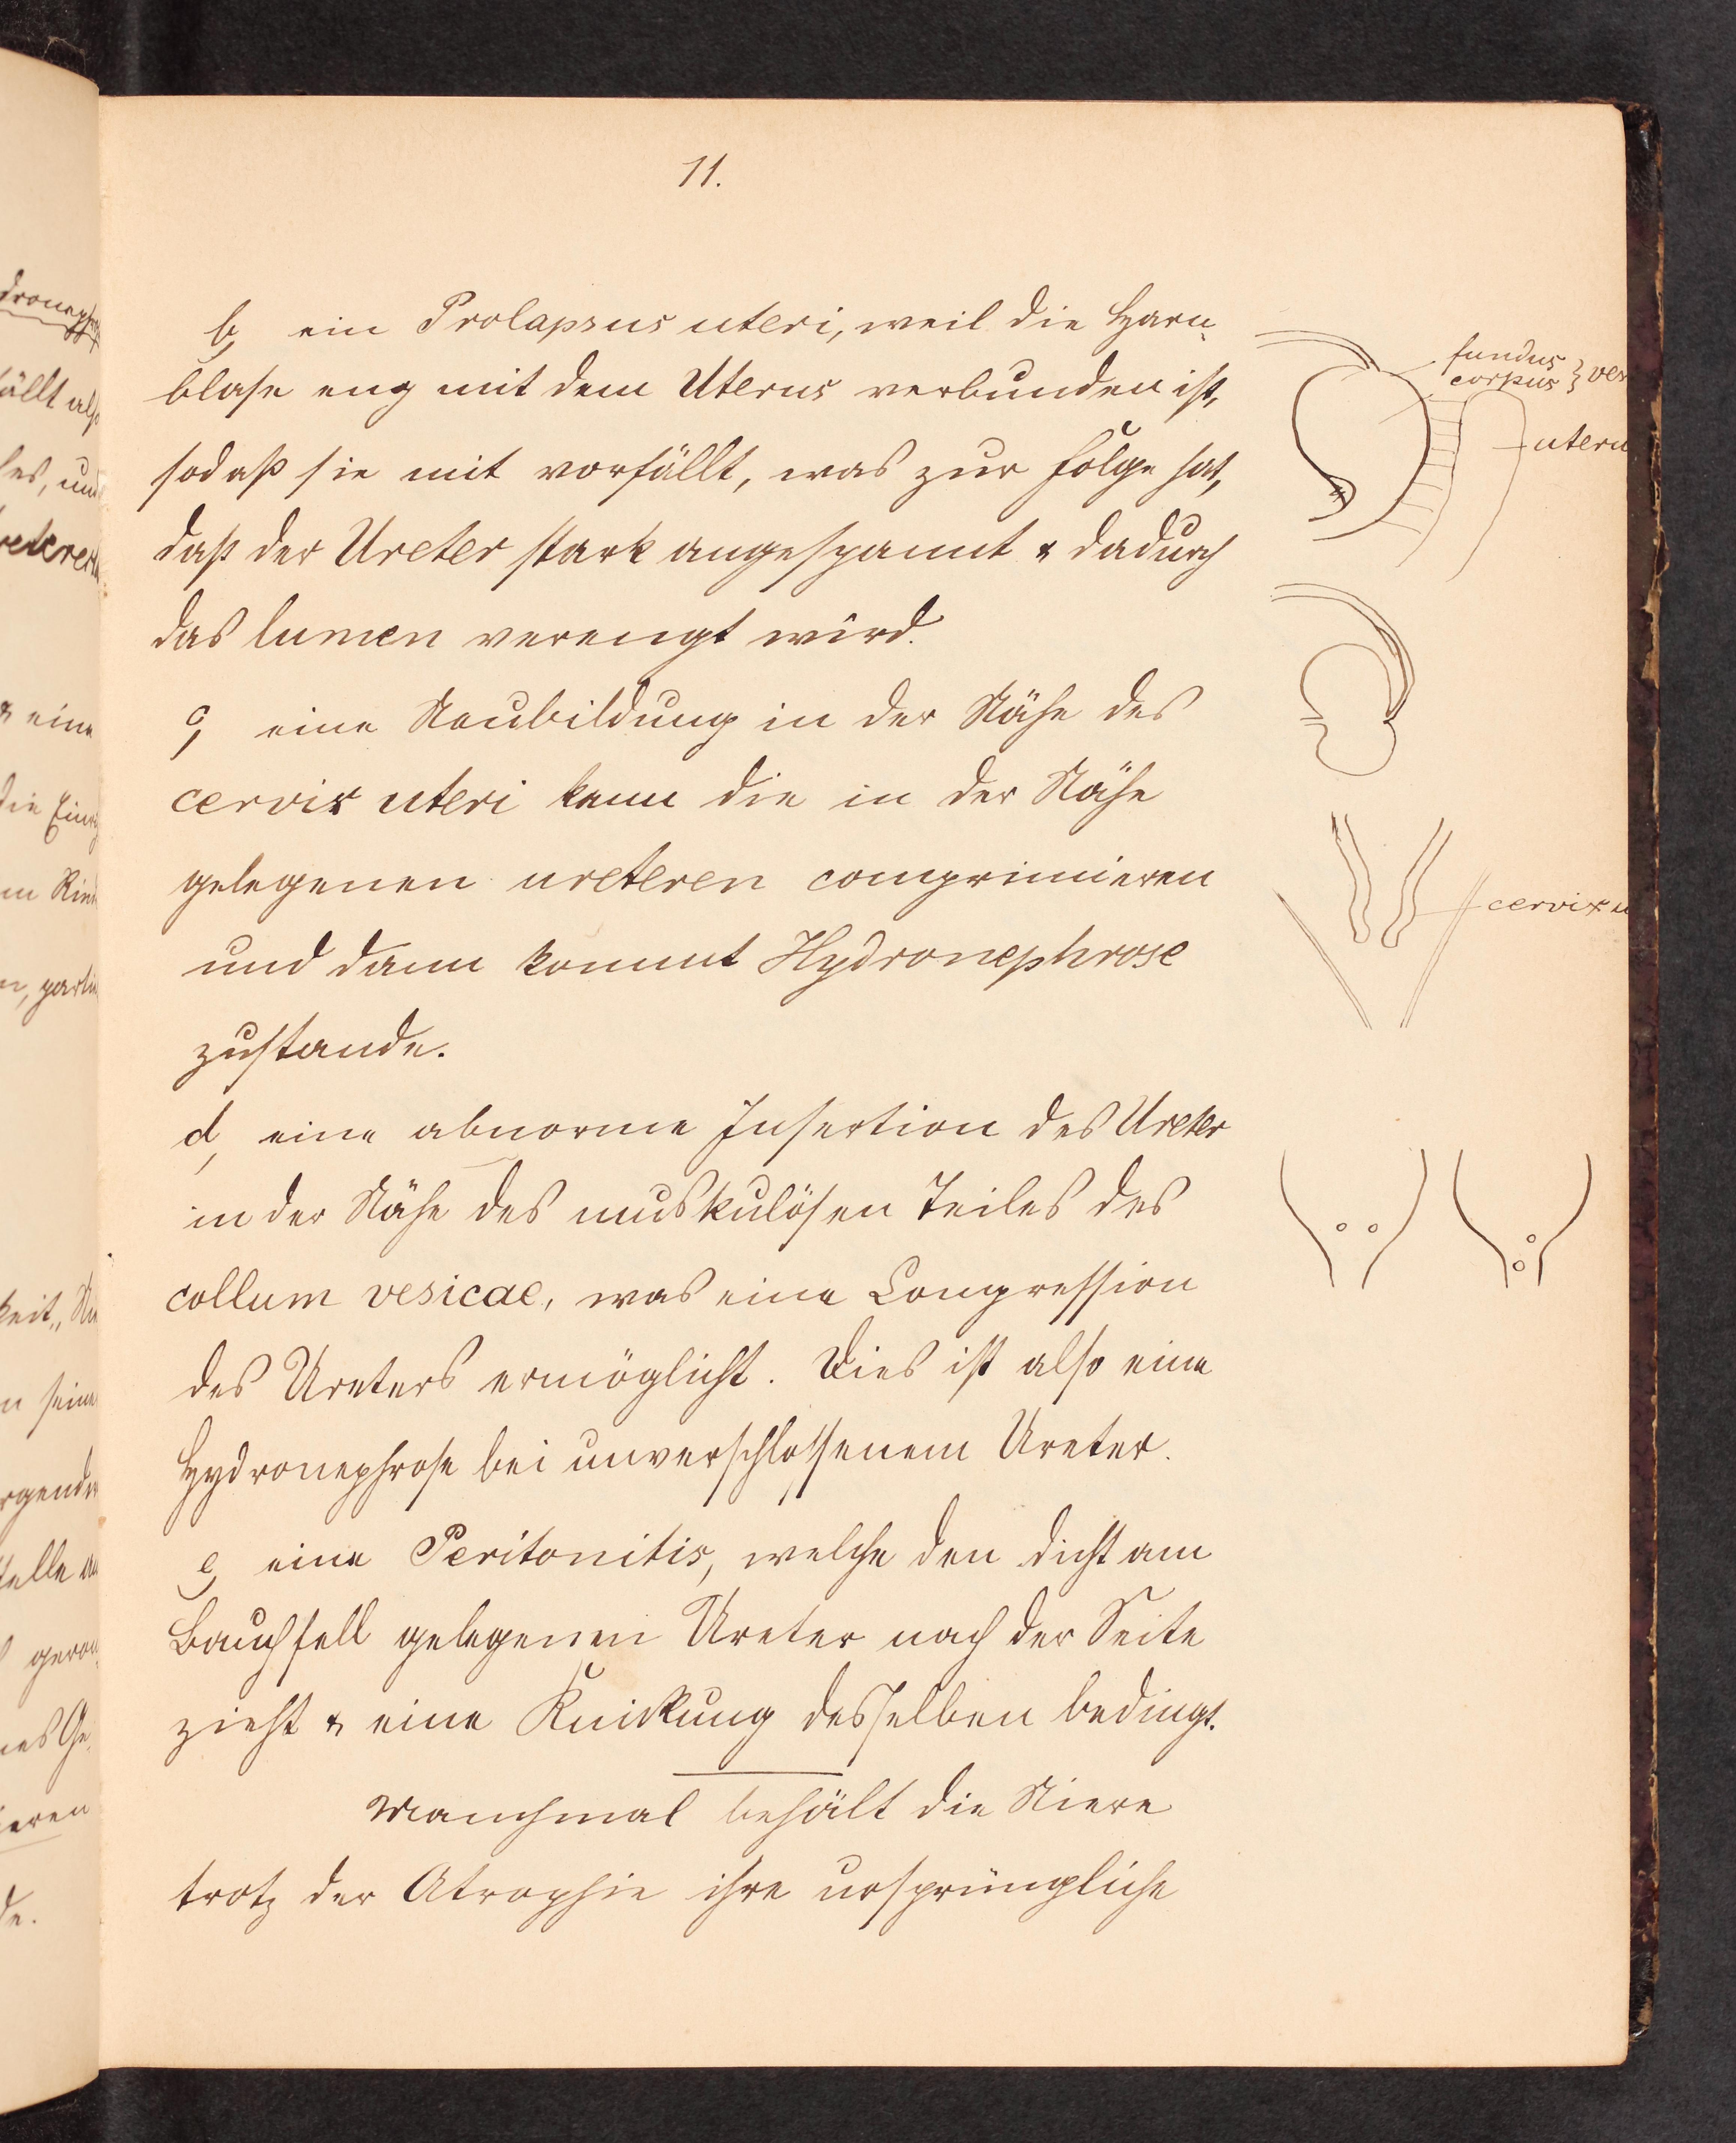 11.
b, ein Prolapsus uteri, weil die Harn-
blase eng mit dem Uterus verbunden ist,
sodaß sie mit vorfällt, was zur Folge hat,
daß der Ureter stark angespannt & dadurch
das lumen verengt wird.
c, eine Neubildung in der Nähe des
cervix uteri kann die in der Nähe
gelegenen ureteren comprimieren
und dann kommt Hydronephrose
zustande.
d, eine abnorme Insertion des Ureter
in der Nähe des muskulösen Teiles des
collum vesicae, was eine Compression
des Ureters ermöglicht. Dies ist also eine
Hydronephrose bei unverschlossenem Ureter.
e, eine Peritonitis, welche den dicht am
Bauchfell gelegenen Ureter nach der Seite
zieht & eine Knickung desselben bedingt.
Manchmal behält die Niere
trotz der Atrophie ihre ursprüngliche
fundus
corpus } ves
uteru
cervix u